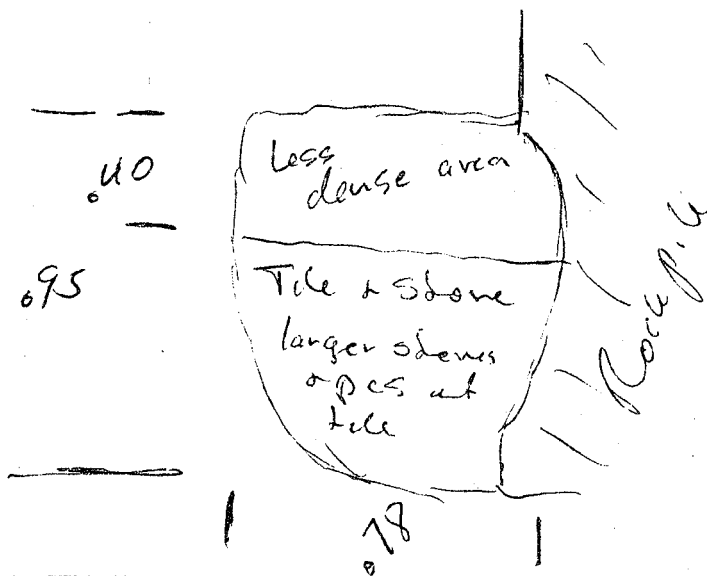 .40
.95
Less
dense area
Tile + Stone
larger stones
+ pcs
tile
Rock pile
.78